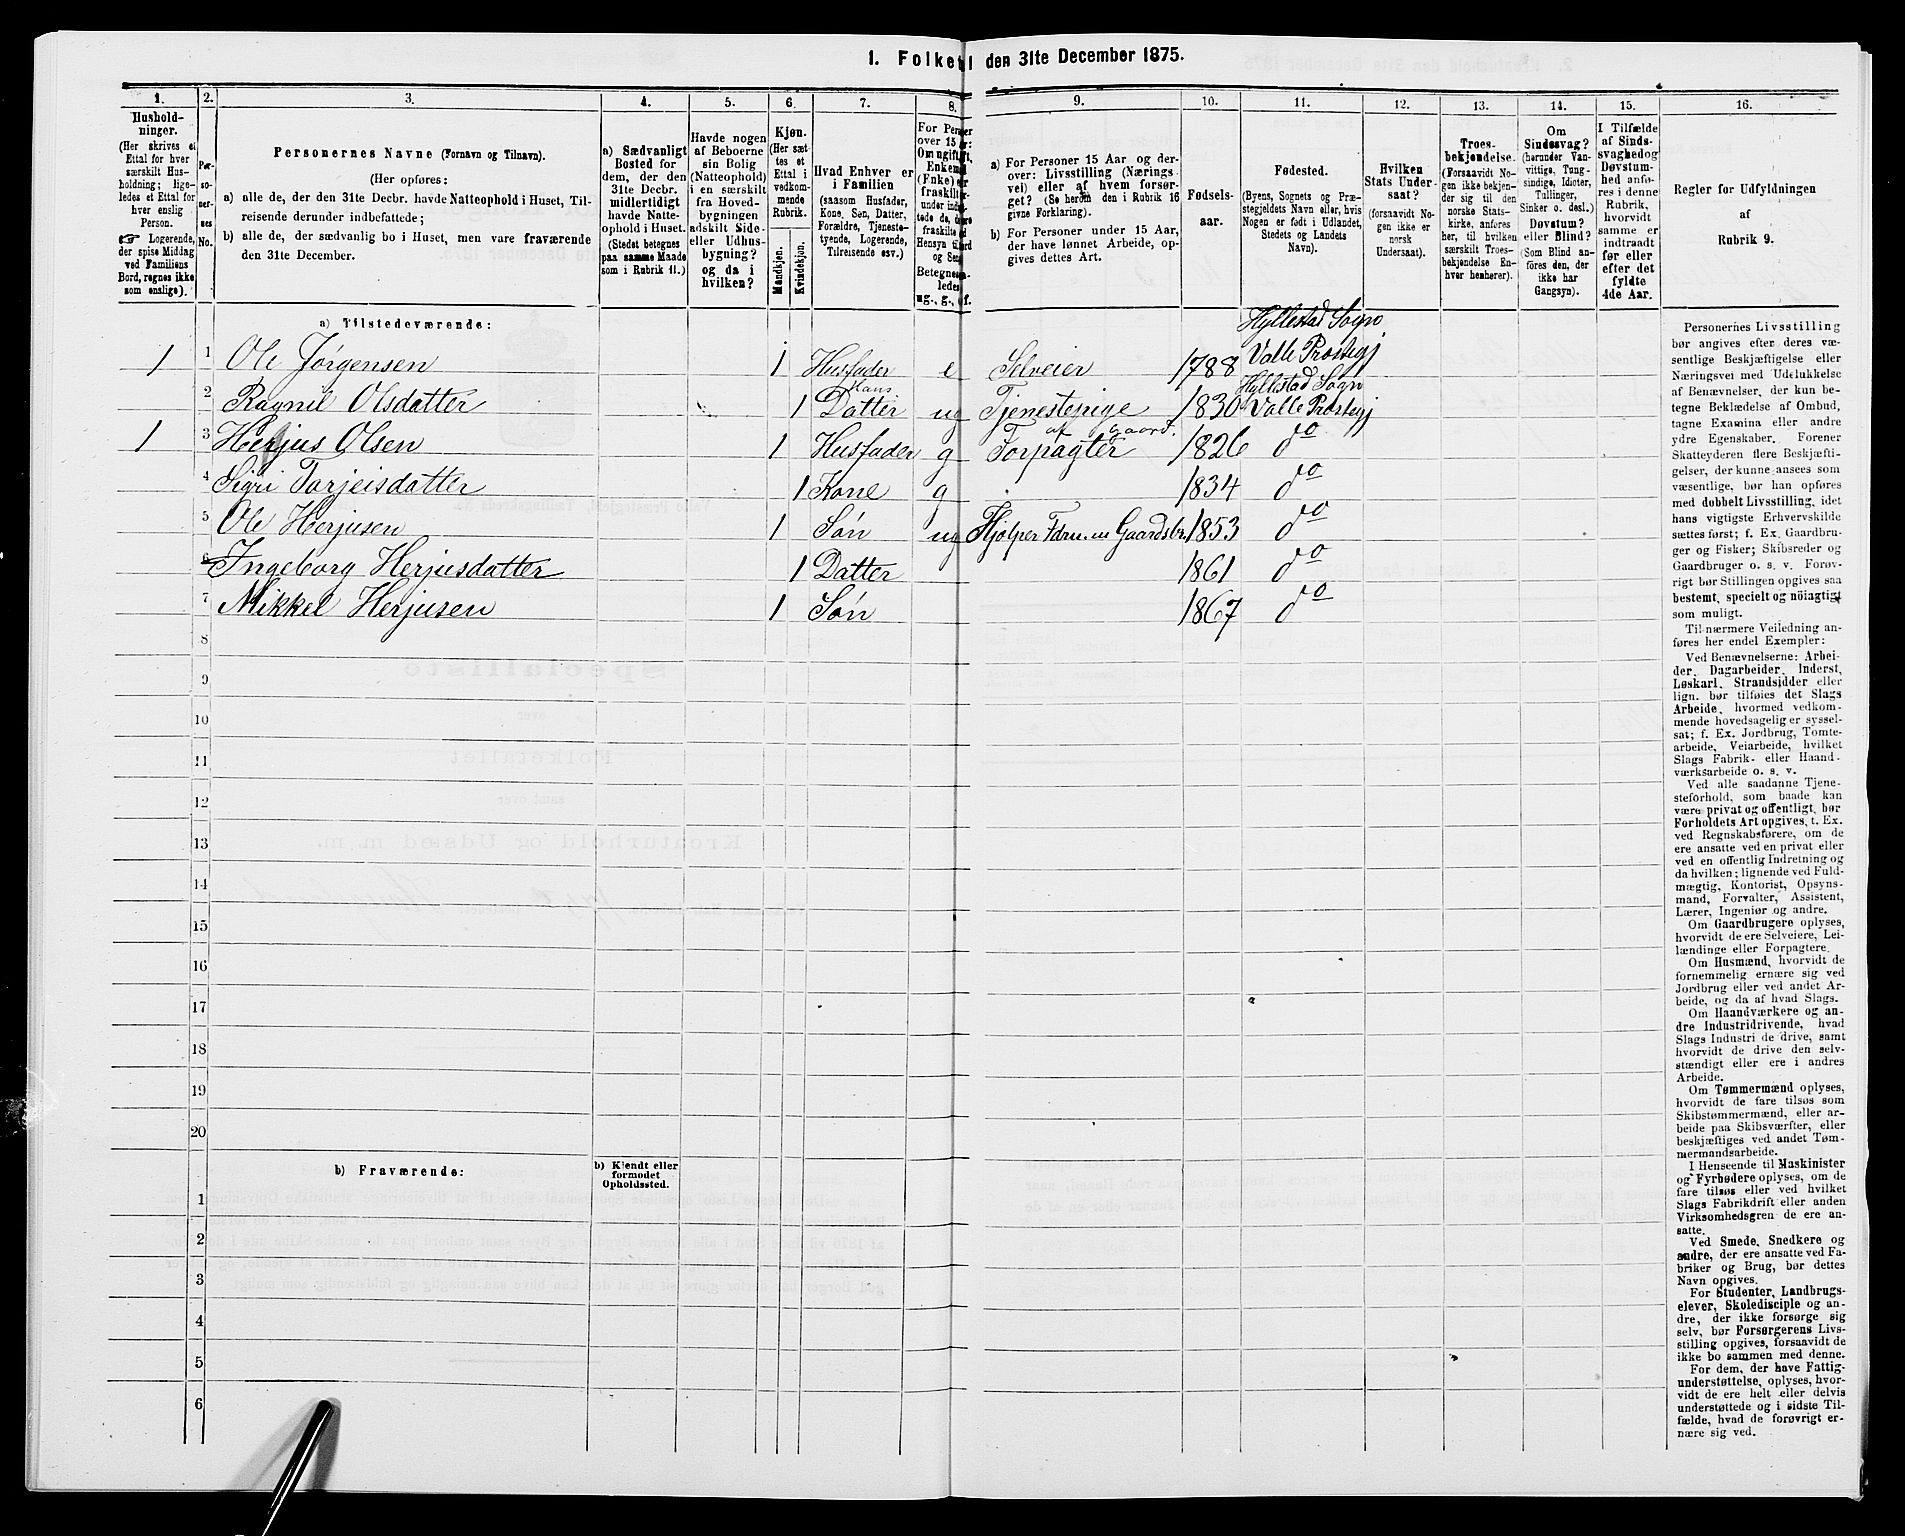 1. Folket l den 31te December 1875.
1. 2. 3. 4. 5. 6. 7. 8. 9. 10. 11. 12. 13. 14. 15. 16.
Hushold-
ninger.
(Her skrives et
Ettal for hver
særskilt Hus-
holdning; lige-
ledes et Ettal for
hver enslig
Person.
☞ Logerende,
der spise Middag
ved Familiens
Bord, regnes ikke
som enslige).
Per-
so-
ner-
nes
No.
Personernes Navne (Fornavn og Tilnavn).
(Her opføres:
a) alle de, der den 31te Decbr. havde Natteophold i Huset, Til-
reisende derunder indbefattede;
b) alle de, der sædvanlig bo i Huset, men vare fraværende
den 31te December.
a) Sædvanligt
Bosted for
dem, der den
31te Decbr.
midlertidigt
havde Natte-
ophold i Huset.
(Stedet betegnes
paa samme Maade
som i Rubrik 11.)
Havde nogen
af Beboerne
sin Bolig
(Natteophold)
i en særskilt
fra Hoved-
bygningen
adskilt Side-
eller Udhus-
bygning?
og da i
hvilken?
Kjøn.
(Her sæt-
tes et
Ettal i
vedkom-
mende
Rubrik.
Mandkjøn.
Kvindekjøn.
Hvad Enhver er
i Familien
(saasom Husfader,
Kone, Søn, Datter,
Forældre, Tjeneste-
tyende, Logerende,
Tilreisende osv.).
For Perso
over 15
Om ugift,
Enkem
(Fnke)
fraskilt
Betegnes
ledes
ug., g., f.
a) For Personer 15 Aar og der-
over: Livsstilling (Nærings-
vei) eller af hvem forsør-
get? (Se herom den i Rubrik 16
givne Forklaring).
b) For Personer under 15 Aar,
der have lønnet Arbeide, op-
gives dettes Art.
Fødsels-
aar.
Fødested.
(Byens, Sognets og Præ-
stegjeldets Navn eller, hvis
Nogen er født i Udlandet,
Stedets og Landets
Navn).
Hvilken
Stats Under-
saat?
(forsaavidt No-
gen ikke er
norsk
Undersaat).
Troes-
bekjendelse.
(Forsaavidt No-
gen ikke bekjen-
der sig til den
norske Stats-
kirke, anføres
her, til hvilken
særskilt Troes-
bekjendelse En-
hver henhører).
Om
Sindssvag?
(herunder Van-
vittige, Tung-
sindige, Idioter,
Tullinger,
Sinker o. desl.)
Døvstum?
eller Blind?
(Som Blind an-
føres den, der
ikke har
Gangsyn).
I Tilfælde
af Sinds-
svaghed og
Døvstum-
hed anfø-
res i denne
Rubrik,
hvorvidt
samme er
indtraadt
før eller
efter det
fyldte
4de Aar.
Regler for Udfyldningen
af
Rubrik 9.
a) Tilstedeværende:
Hyllestad Sogn
1 1 Ole Jørgensen 1 Husfader e Selveier 1788 Valle Præstegj
Hans Hyllestad Sogn
2 Ragnil Olsdatter 1 Datter ug Tjenestepige 1830 Valle Præstegj
af Gaard.
1 3 Herjus Olsen 1 Husfader g Forpagter 1826 do
4 Sigri Tarjeisdatter 1 Kone g 1834 do
5 Ole Herjusen 1 Søn ug Hjelper Fdrn. m Gaardsbr. 1853 do
6 Ingeborg Herjusdatter 1 Datter 1861 do
7 Mikkel Herjusen 1 Søn 1867 do
8
9
10
11
12
13
14
15
16
17
18
19
20
b) Fraværende:
b) Kjendt eller
formodet
Opholdssted.
1
2
3
4
5
6
Personernes Livsstilling
bør angives efter deres væ-
sentlige Beskjæftigelse eller
Næringsvei med Udelukkelse
af Benævnelser, der kun be-
tegne Beklædelse af Ombud,
tagne Examina eller andre
ydre Egenskaber. Forener
Skatteyderen flere Beskjæfti-
gelser, der kunne ansees som
væsentlige, bør han opføres
med dobbelt Livsstilling, idet
hans vigtigste Erhvervskilde
sættes først; f. Ex. Gaardbru-
ger og Fisker; Skibsreder og
Gaardbruger o. s. v. Forøv-
rigt bør Stillingen opgives saa
bestemt, specielt og nöiagtigt
som muligt.
Til nærmere Veiledning an-
føres her endel Exempler:
Ved Benævnelserne: Arbei-
der, Dagarbeider, Inderst,
Løskarl, Strandsidder eller
lign. bør tilføies det Slags
Arbeide, hvormed vedkom-
mende hovedsagelig er syssel-
sat; f. Ex. Jordbrug, Tomte-
arbeide, Veiarbeide, hvilket
Slags Fabrik- eller Haand-
værksarbeide o. s. v.
Ved alle saadanne Tjene-
steforhold, som baade kan
være privat og offentligt, bør
Forholdets Art opgives, t. Ex.
ved Regnskabsførere, om de
ere ansatte ved en privat eller
ved en offentlig Indretning og
da hvilken; lignende ved Fuld-
mægtig, Kontorist, Opsyns-
mand, Forvalter, Assistent,
Lærer, Ingeniør og andre.
Om Gaardbrugere oplyses,
hvorvidt de ere Selveiere, Lei-
lændinge eller Forpagtere.
Om Husmænd, hvorvidt de
fornemmelig ernære sig ved
Jordbrug eller ved andet Ar-
beide, og da af hvad Slags.
Om Haandværkere og an-
dre Industridrivende, hvad
Slags Industri de drive, samt
hvorvidt de drive den selv-
stændigt eller ere i andres
Arbeide.
Om Tømmermænd oplyses,
hvorvidt de fare tilsøs som
Skibstømmermænd, eller ar-
beide paa Skibsværfter, eller
beskjæftiges ved andet Tøm-
mermandsarbeide.
I Henseende til Maskinister
og Fyrbødere oplyses, om de
fare tilsøs eller ved hvilket
Slags Fabrikdrift eller anden
Virksomhedsgren de ere an-
satte.
Ved Smede, Snedkere og
andre, der ere ansatte ved Fa-
briker og Brug, bør dettes
Navn opgives.
For Studenter, Landbrugs-
elever, Skoledisciple og an-
dre, der ikke forsørge sig
selv, bør Forsørgerens Livs-
stilling opgives, forsaavidt de
ikke bo sammen med denne.
For dem, der have Fattig-
understøttelse, oplyses, hvor-
vidt de ere helt eller delvis
understøttede og i sidste Til-
fælde, hvad de forøvrigt er-
nære sig ved.